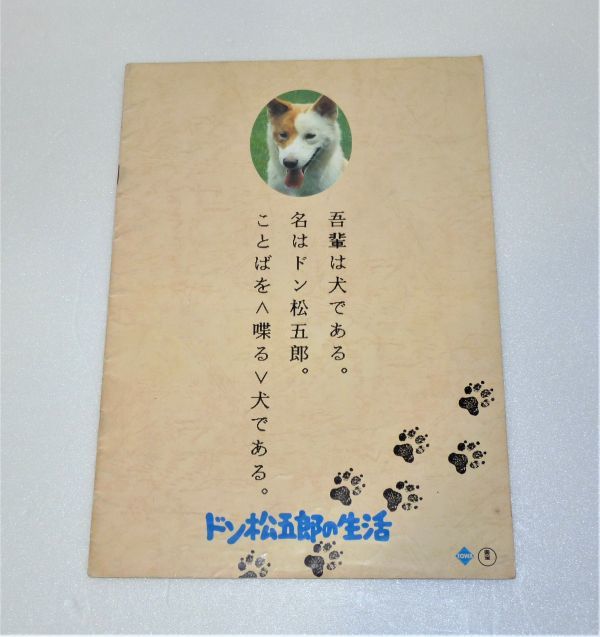 吾輩は犬である。
名はドン松五郎。
ことばを＜喋る＞犬である。
ドン松五郎の生活
TOWA
東宝